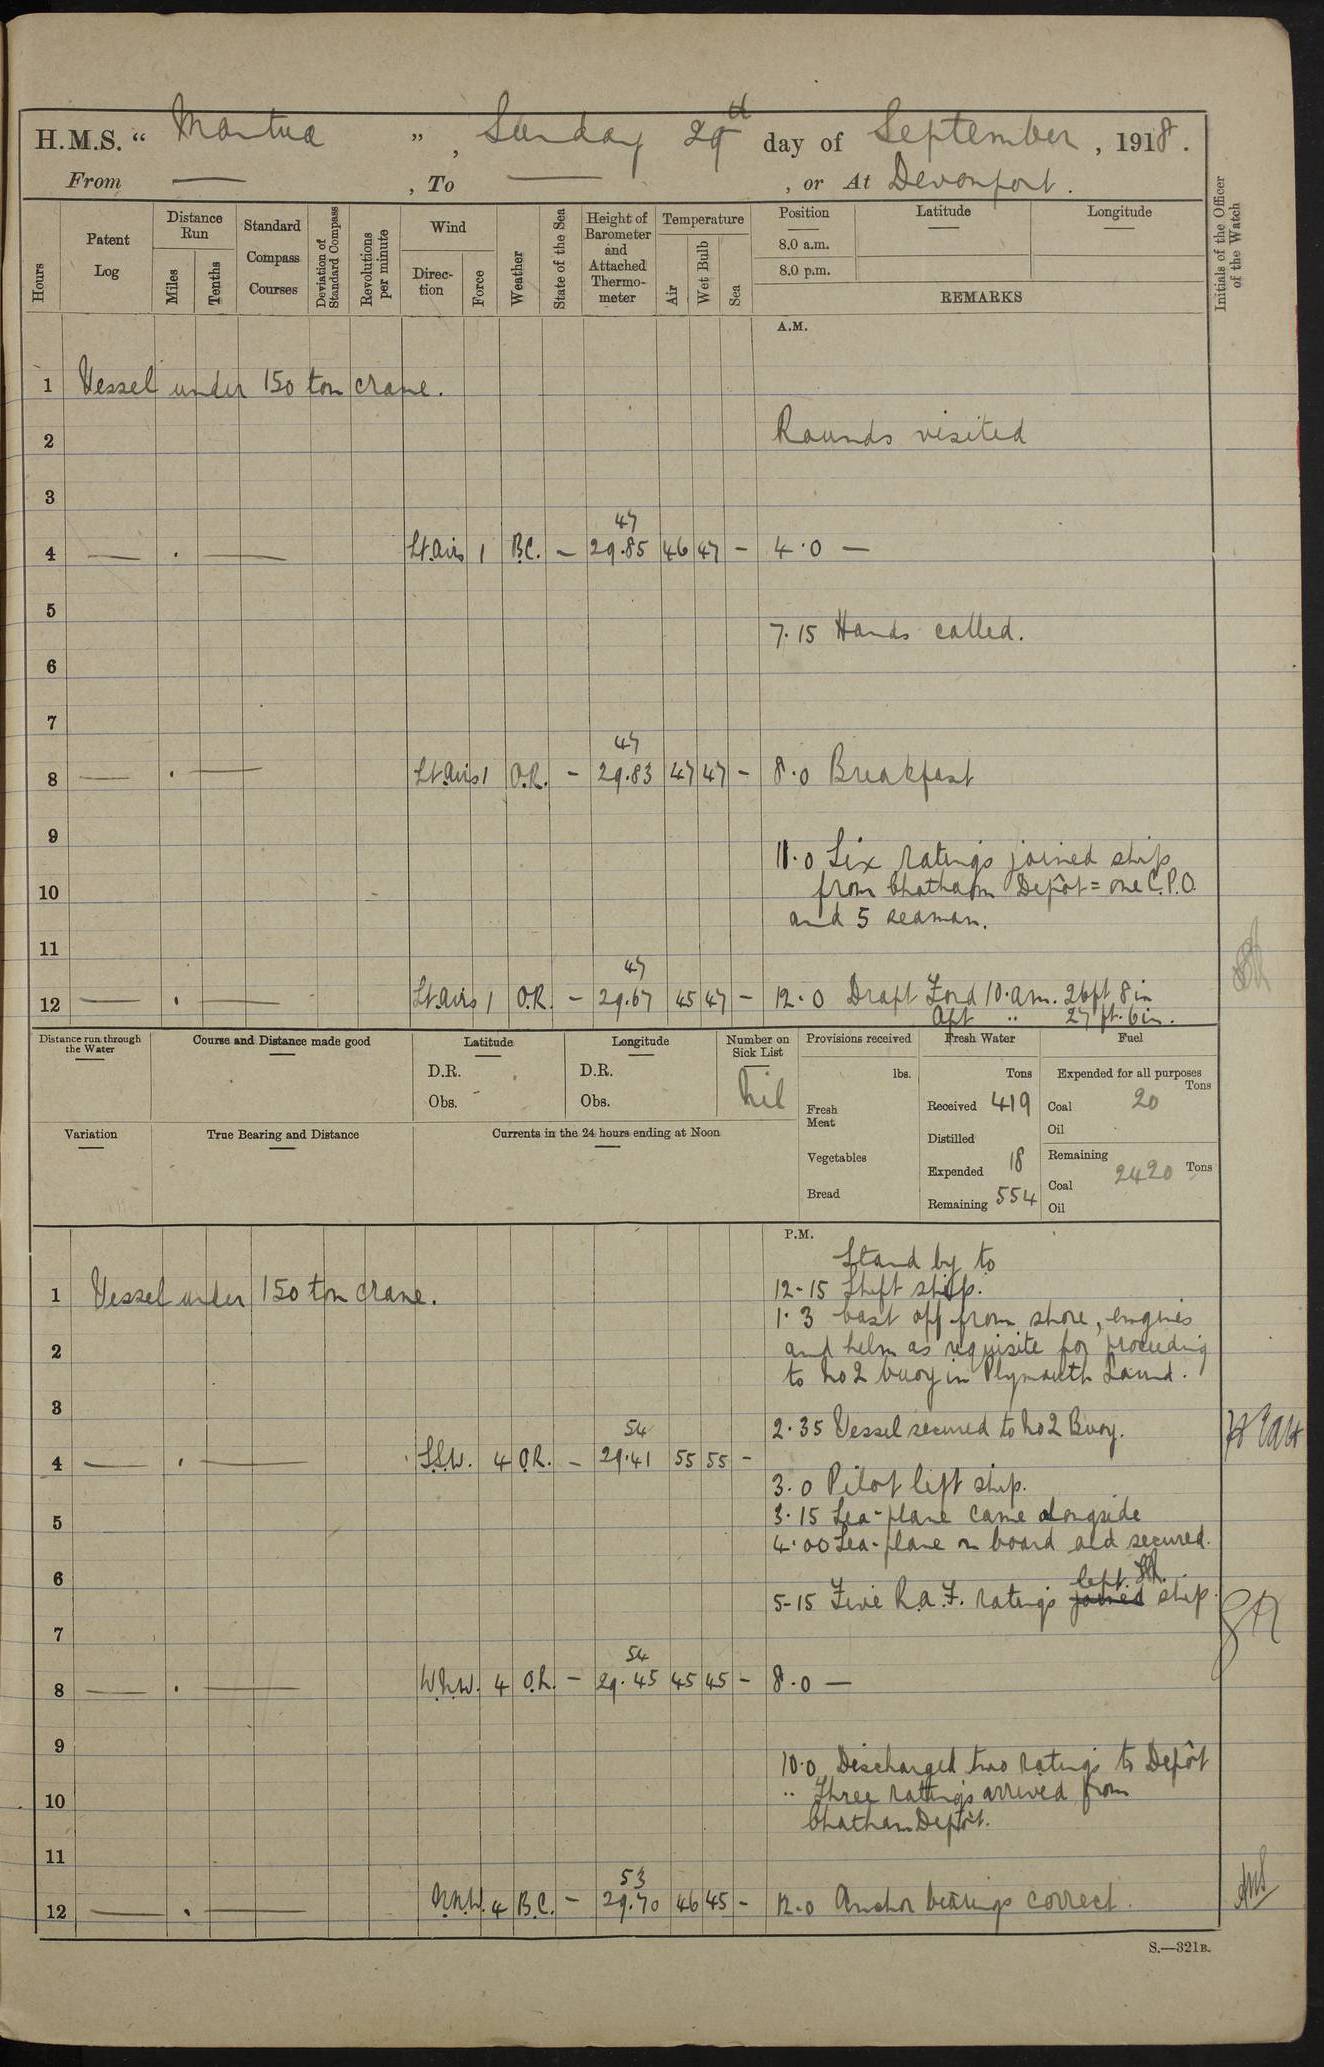 H.M.S. " Mantua ", Sunday 29th day of September, 1918.
From — , To — , or At Devonport.
Hours
Patent Log
Distance Run
Miles
Tenths
Standard Compass Courses
Deviation of Standard Compass
Revolutions per minute
Wind
Direc-tion
Force
Weather
State of the Sea
Height of Barometer and Attached Thermo-meter
Temperature
Air
Wet Bulb
Sea
Position
Latitude
Longitude
8.0 a.m.
8.0 p.m.
REMARKS
Initials of the Officer of the Watch
A.M.
1 Vessel under 150 ton crane.
2 Rounds visited
3
47
4 — . — Lt.airs 1 B.C. – 29.85 46 47 – 4.0 —
5
7.15 Hands called.
6
7
47
8 — . — Lt.airs 1 O.R. – 29.83 47 47 – 8.0 Breakfast
9
11.0 Six ratings joined ship
10 from Chatham Depôt = one C.P.O.
and 5 seaman.
11
47
12 — . — Lt.airs 1 O.R. – 29.67 45 47 – 12.0 Draft Ford 10.am. 26ft 8in
Aft " 27ft.6in.
Distance run through the Water
Course and Distance made good
Latitude
D.R.
Obs.
Longitude
D.R.
Obs.
Number on Sick List
Nil
Provisions received
lbs.
Fresh Meat
Vegetables
Bread
Fresh Water
Tons
Received 419
Distilled
Expended 18
Remaining 554
Fuel
Expended for all purposes
Tons
Coal 20
Oil
Remaining
Coal 2420 Tons
Oil
Variation
True Bearing and Distance
Currents in the 24 hours ending at Noon
P.M.
Stand by to
1 Vessel under 150 ton crane. 12-15 Shift ship.
1.3 Cast off from shore, engines
2 and helm as requisite for proceeding
to No2 buoy in Plymouth Sound.
3
2.35 Vessel secured to No2 Buoy.
54
4 — . — S.S.W. 4 O.R. – 29.41 55 55 –
3.0 Pilot left ship.
3.15 Sea-plane came alongside
5
4.00 Sea-plane on board and secured.
6 left
5-15 Five R.A.F. ratings joined ship.
7
54
8 — . — W.N.W. 4 O.R. – 29.45 45 45 – 8.0 —
9
10.0 Discharged two ratings to Depôt
10 " Three ratings arrived from
Chatham Depôt.
11
53
12 — . — N.N.W. 4 B.C. – 29.70 46 45 – 12.0 Anchor bearings correct.
S.—321B.